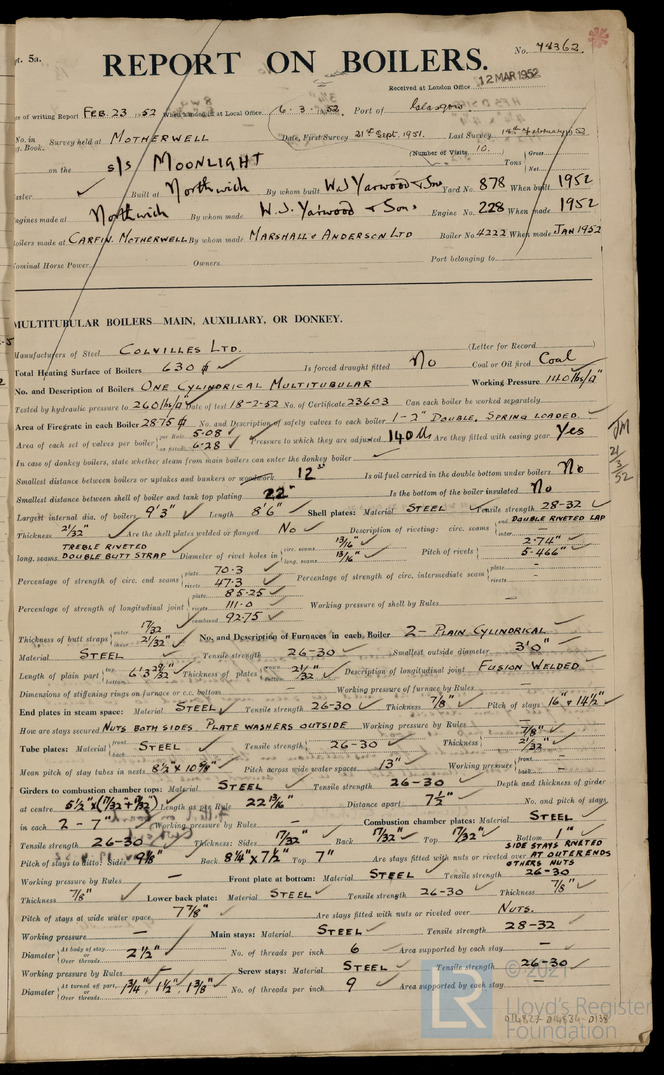 pt. 5a.
REPORT ON BOILERS.
No. 74362.
Received at London Office 12 MAR 1952
of writing Report FEB. 23 1952 When handed in at Local Office 6.3.1952 Port of Glasgow
No. in Survey held at MOTHERWELL Date, First Survey 21st Sept. 1951. Last Survey 18th February 1952
g. Book.
(Number of Visits 10.)
on the s/s MOONLIGHT Tons { Gross Net
aster Built at Northwich By whom built W.J. Yarwood & Sons Yard No. 878 When built 1952
ngines made at Northwich By whom made W.J. Yarwood & Sons Engine No. 228 When made 1952
oilers made at CARFIN, MOTHERWELL By whom made MARSHALL & ANDERSON LTD Boiler No. 4222 When made JAN 1952
ominal Horse Power Owners Port belonging to
MULTITUBULAR BOILERS—MAIN, AUXILIARY, OR DONKEY.
Manufacturers of Steel COLVILLES LTD. (Letter for Record )
Total Heating Surface of Boilers 630 ✓ Is forced draught fitted No Coal or Oil fired Coal
No. and Description of Boilers ONE CYLINDRICAL MULTITUBULAR Working Pressure 140 lbs/□"
Tested by hydraulic pressure to 260 lbs/□" Date of test 18-2-52 No. of Certificate 23603 Can each boiler be worked separately
Area of Firegrate in each Boiler 28.75 No. and Description of safety valves to each boiler 1-2" DOUBLE, SPRING LOADED.
Area of each set of valves per boiler { per Rule 5.08 as fitted 6.28 ✓ Pressure to which they are adjusted 140 lbs Are they fitted with easing gear Yes
In case of donkey boilers, state whether steam from main boilers can enter the donkey boiler
Smallest distance between boilers or uptakes and bunkers or woodwork 12" Is oil fuel carried in the double bottom under boilers No
Smallest distance between shell of boiler and tank top plating 22" Is the bottom of the boiler insulated No
Largest internal dia. of boilers 9'3" ✓ Length 8'6" ✓ Shell plates: Material STEEL ✓ Tensile strength 28-32 ✓
Thickness 21/32" ✓ Are the shell plates welded or flanged No ✓ Description of riveting: circ. seams { end DOUBLE RIVETED LAP inter. —
long. seams TREBLE RIVETED DOUBLE BUTT STRAP Diameter of rivet holes in { circ. seams 13/16" ✓ long. seams 13/16" ✓ Pitch of rivets { 2.74" ✓ 5.466" ✓
Percentage of strength of circ. end seams { plate 70.3 rivets 47.3 ✓ Percentage of strength of circ. intermediate seam { plate — rivets —
Percentage of strength of longitudinal joint { plate 85.25 ✓ rivets 111.0 ✓ combined 92.75 ✓ Working pressure of shell by Rules —
Thickness of butt straps { outer 17/32 inner 21/32" ✓ No. and Description of Furnaces in each Boiler 2 - PLAIN CYLINDRICAL
Material STEEL ✓ Tensile strength 26-30 ✓ Smallest outside diameter 3'0" ✓
Length of plain part { top bottom 6'3 29/32" ✓ Thickness of plates { crown bottom 21/32" ✓ Description of longitudinal joint FUSION WELDED ✓
Dimensions of stiffening rings on furnace or c.c. bottom — Working pressure of furnace by Rules —
End plates in steam space: Material STEEL ✓ Tensile strength 26-30 ✓ Thickness 7/8" ✓ Pitch of stays 16" & 14½" ✓
How are stays secured NUTS BOTH SIDES PLATE WASHERS OUTSIDE Working pressure by Rules —
Tube plates: Material { front back STEEL ✓ Tensile strength { 26-30 ✓ Thickness { 7/8" ✓ 21/32" ✓
Mean pitch of stay tubes in nests 8½" x 10⅝" ✓ Pitch across wide water spaces 13" ✓ Working pressure { front — back —
Girders to combustion chamber tops: Material STEEL ✓ Tensile strength 26-30 ✓ Depth and thickness of girder
at centre 5½" Length as per Rule 22 13/16" Distance apart 7½" ✓ No. and pitch of stays
in each 2 - 7" Working pressure by Rules — Combustion chamber plates: Material STEEL ✓
Tensile strength 26-30 ✓ Thickness: Sides 17/32" ✓ Back 17/32" ✓ Top 17/32" ✓ Bottom 1" ✓
Pitch of stays to ditto: Sides Back 8¼" x 7½" Top 7" Are stays fitted with nuts or riveted over SIDE STAYS RIVETED AT OUTER ENDS OTHERS NUTS
Working pressure by Rules — Front plate at bottom: Material STEEL ✓ Tensile strength 26-30
Thickness 7/8" ✓ Lower back plate: Material STEEL ✓ Tensile strength 26-30 ✓ Thickness 7/8" ✓
Pitch of stays at wide water space 7⅞" ✓ Are stays fitted with nuts or riveted over NUTS.
Working pressure — Main stays: Material STEEL ✓ Tensile strength 28-32 ✓
Diameter { At body of stay or Over threads 2½" ✓ No. of threads per inch 6 Area supported by each stay —
Working pressure by Rules — Screw stays: Material STEEL ✓ Tensile strength 26-30 ✓
Diameter { At turned off part, or Over threads 1¾", 1½", 1⅜" ✓ No. of threads per inch 9 ✓ Area supported by each stay —
JM
21/3/52
LR
© 2021
Lloyd's Register
Foundation
014827-014836-0138